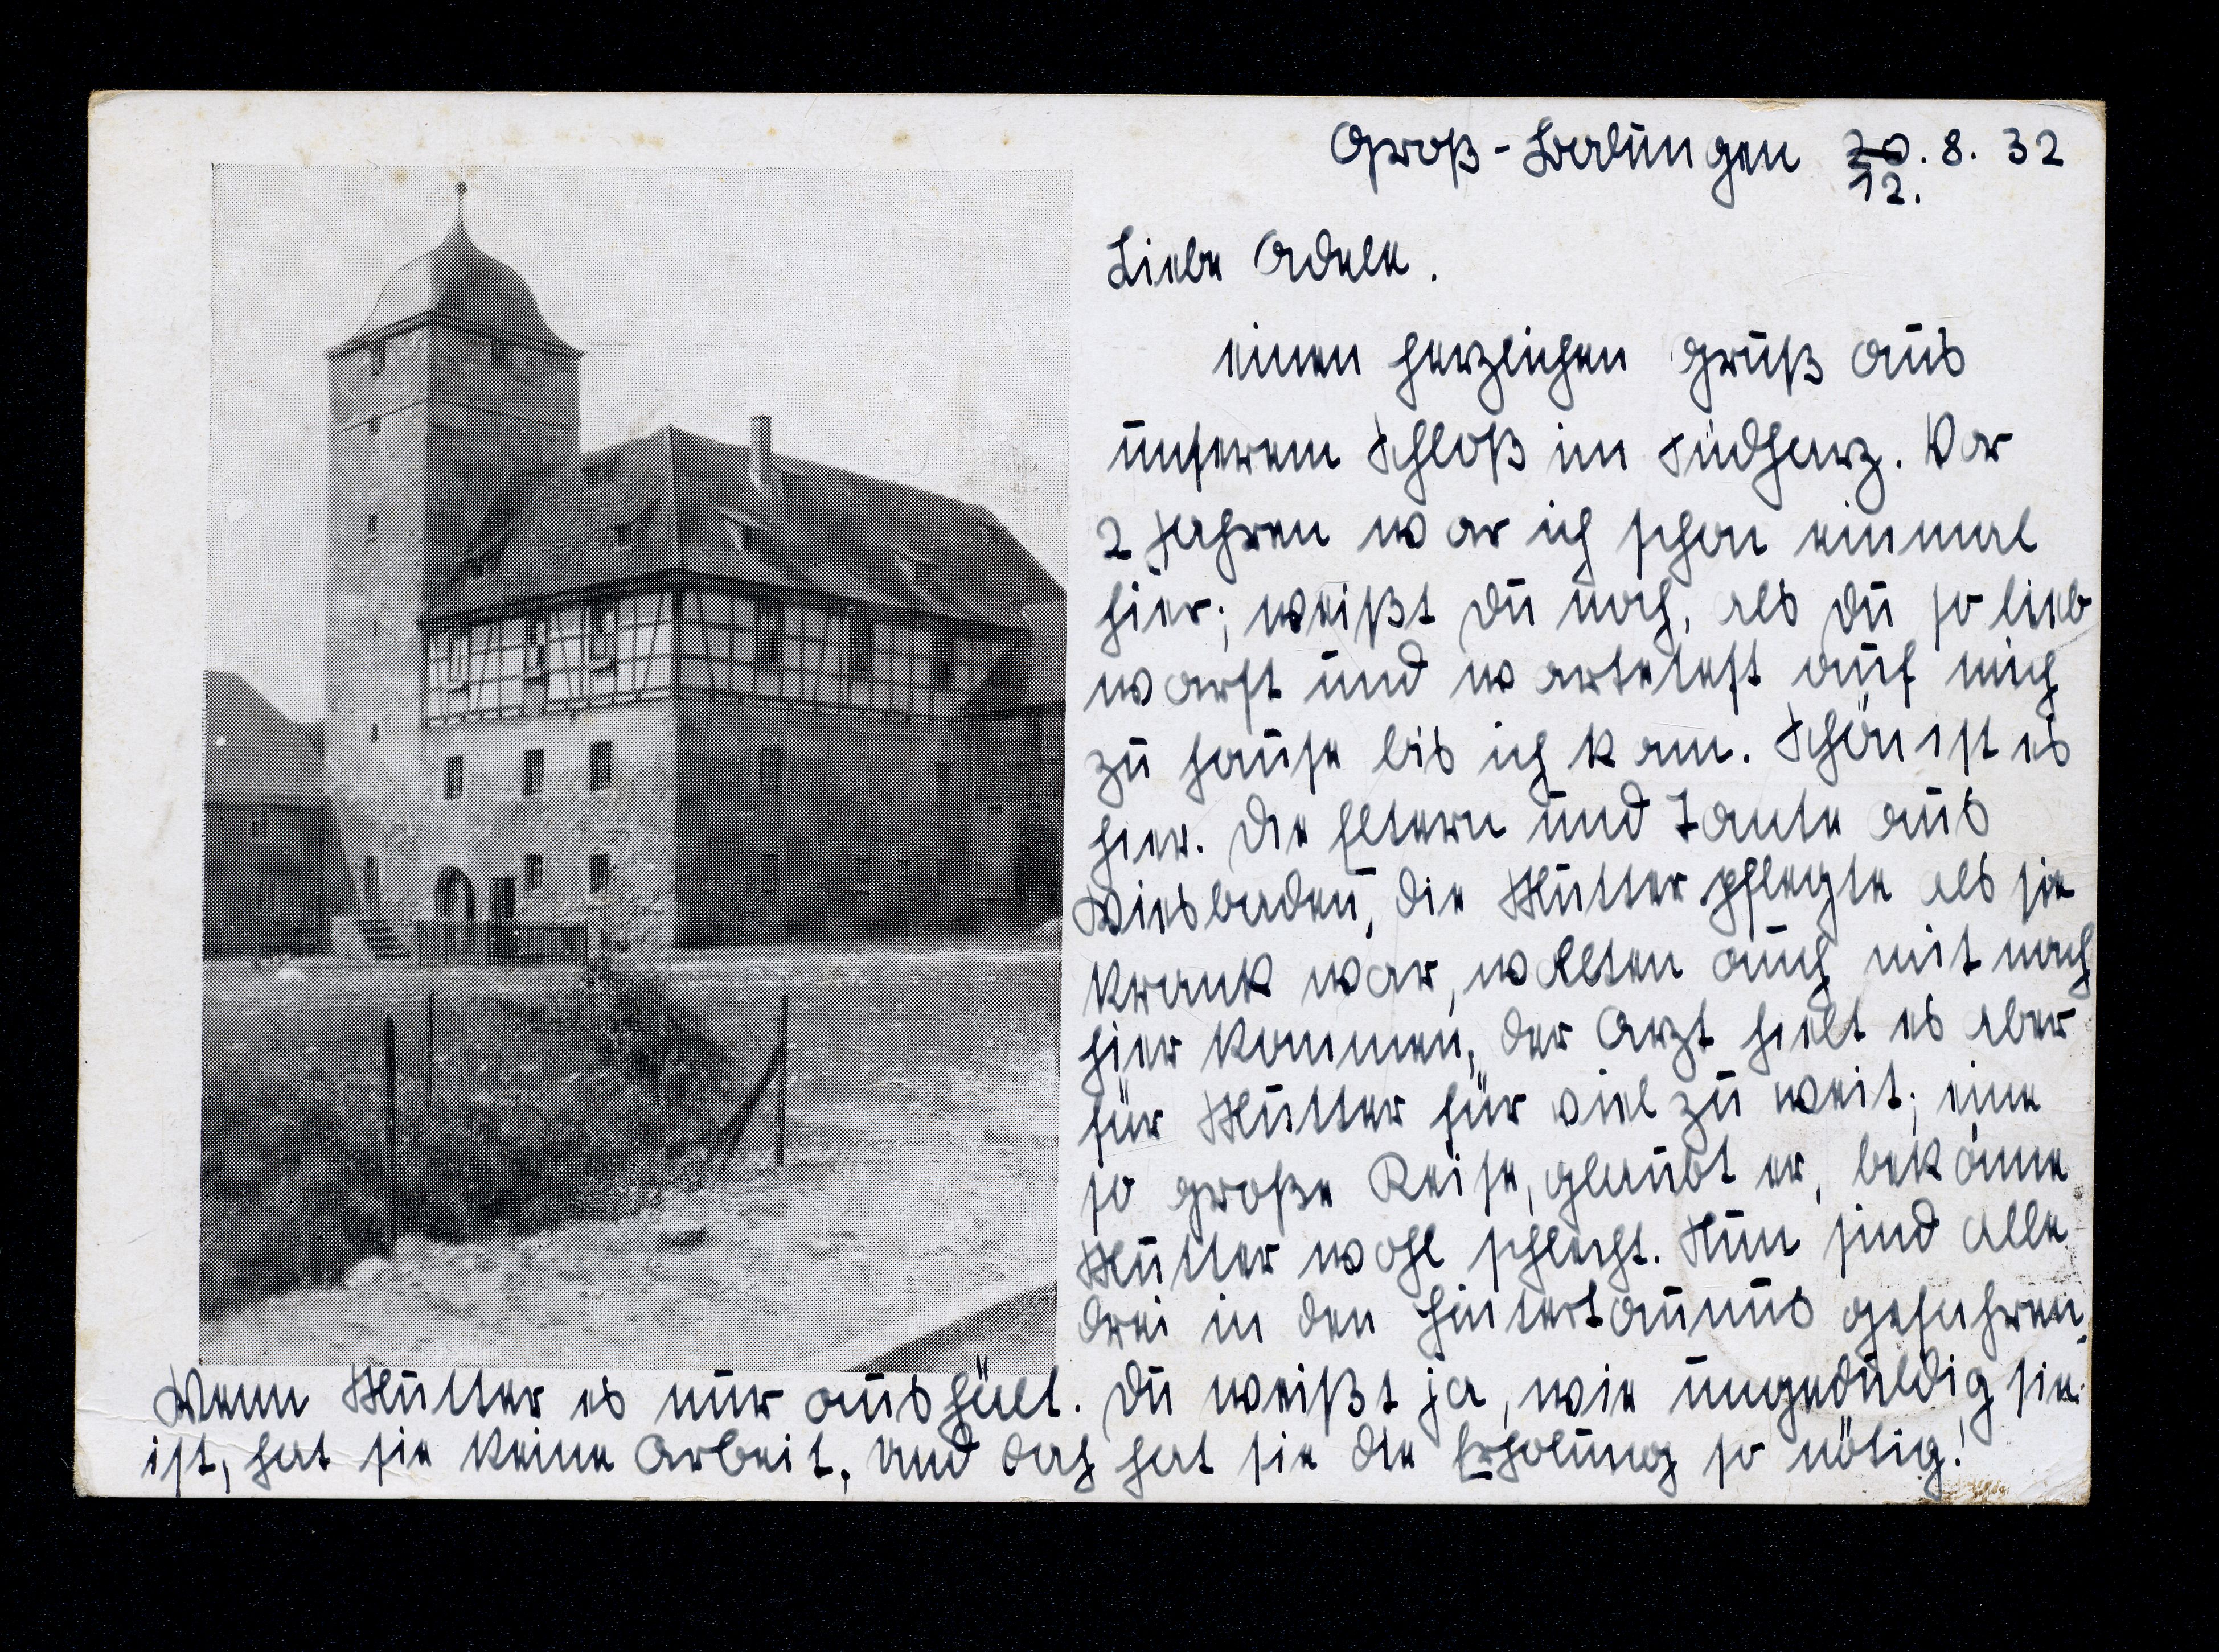 Groß-Bodungen 20. 8. 32
12.
Liebe Adele.
einen herzlichen Gruß aus
unserem Schloß im Südharz. Vor
2 Jahren war ich schon einmal
hier; weißt Du noch, als Du so lieb
warst und wartetest auf mich
zu hause bis ich kam. Schön ist es
hier. Die Eltern und Tante aus
Wiesbaden, die Mutter pflegte als sie
krank war, wollten auch mit nach
hier kommen, der Arzt hielt es aber
für Mutter für viel zu weit; eine
so große Reise, glaubt er, bekäme
Mutter wohl schlecht. Nun sind alle
drei in den Hintertaunus gefahren.
Wenn Mutter es nur aushält. Du weißt ja, wie ungeduldig sie
ist, hat sie keine Arbeit, und doch hat sie die Erholung so nötig!